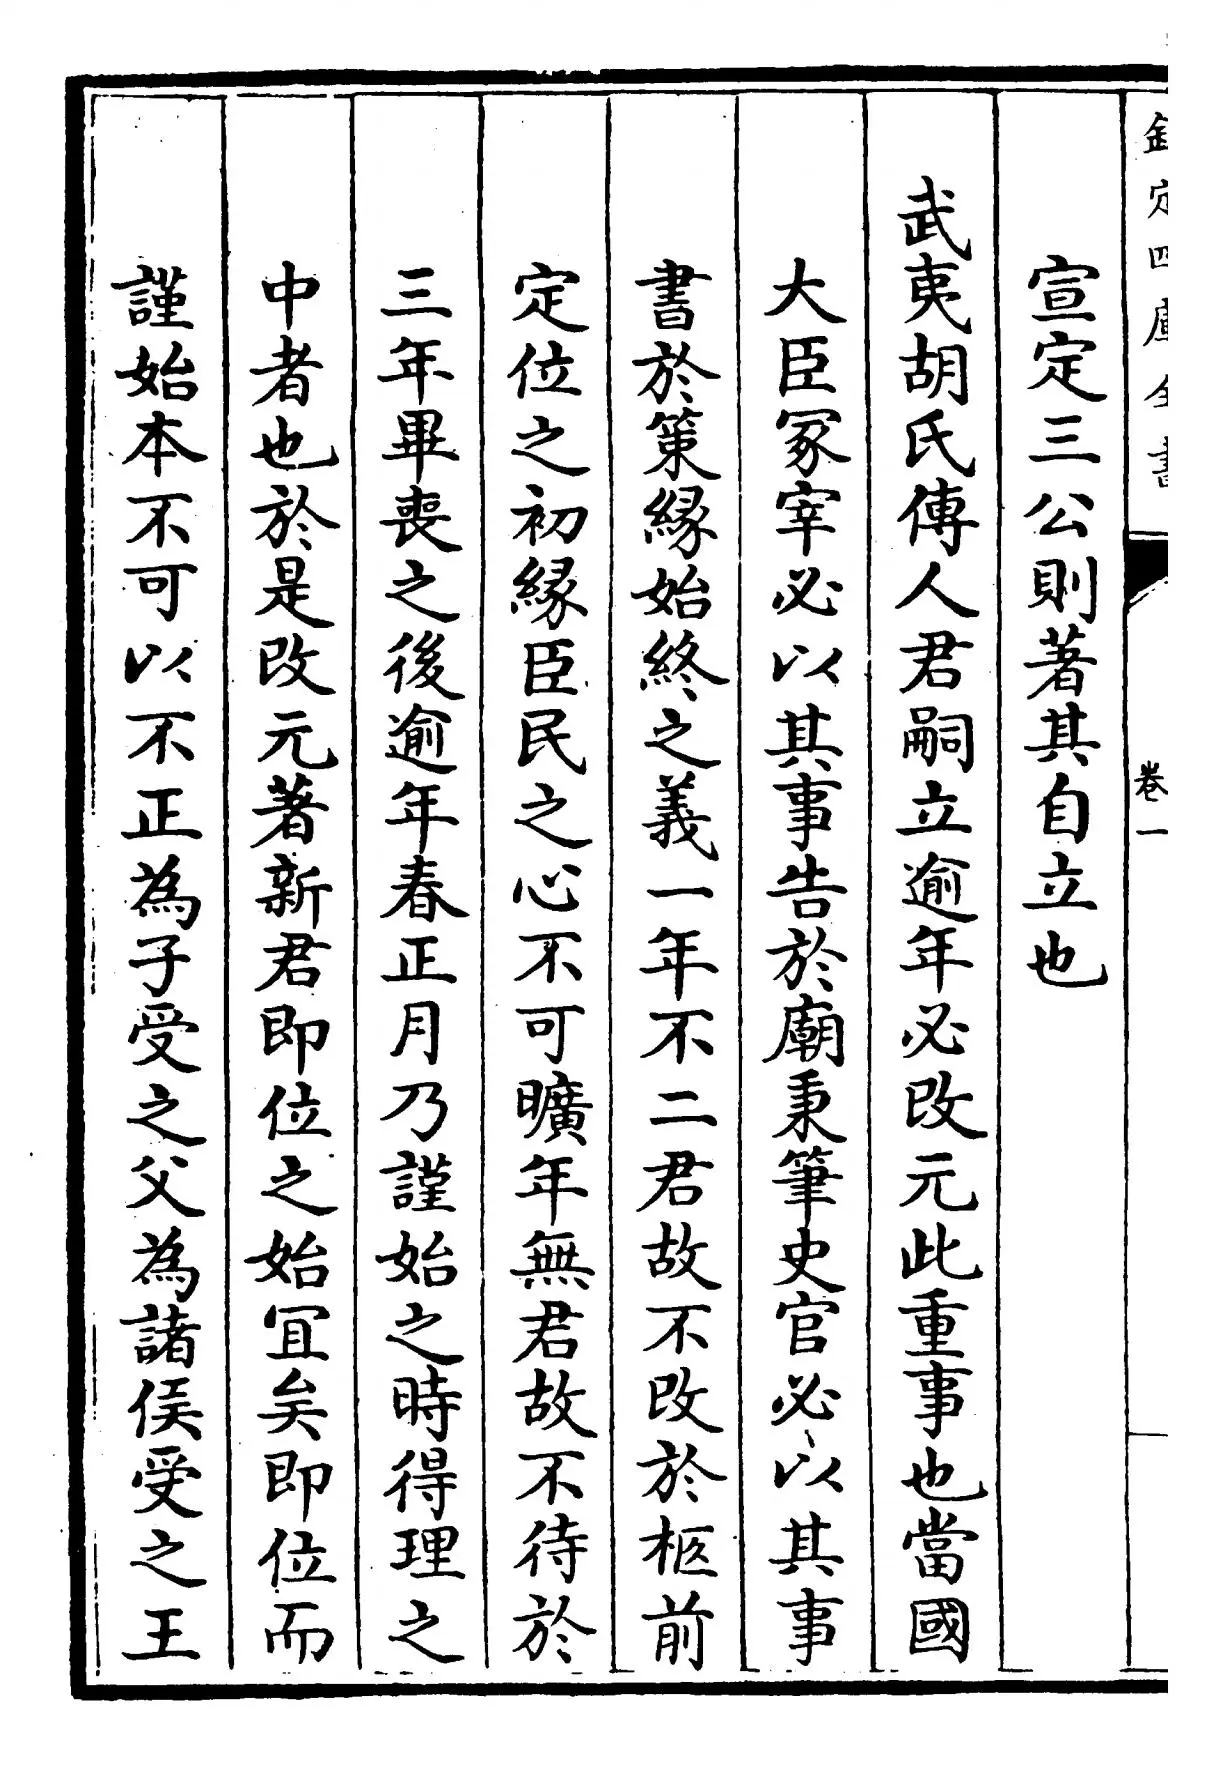 欽定四庫全書
卷一
宣定三公則著其自立也
武夷胡氏傳人君嗣立逾年必改元此重事也當國
大臣冢宰必以其事告於廟秉筆史官必以其事
書於策緣始終之義一年不二君故不改於柩前
定位之初緣臣民之心不可曠年無君故不待於
三年畢喪之後逾年春正月乃謹始之時得理之
中者也於是改元著新君即位之始宜矣即位而
謹始本不可以不正為子受之父為諸侯受之王